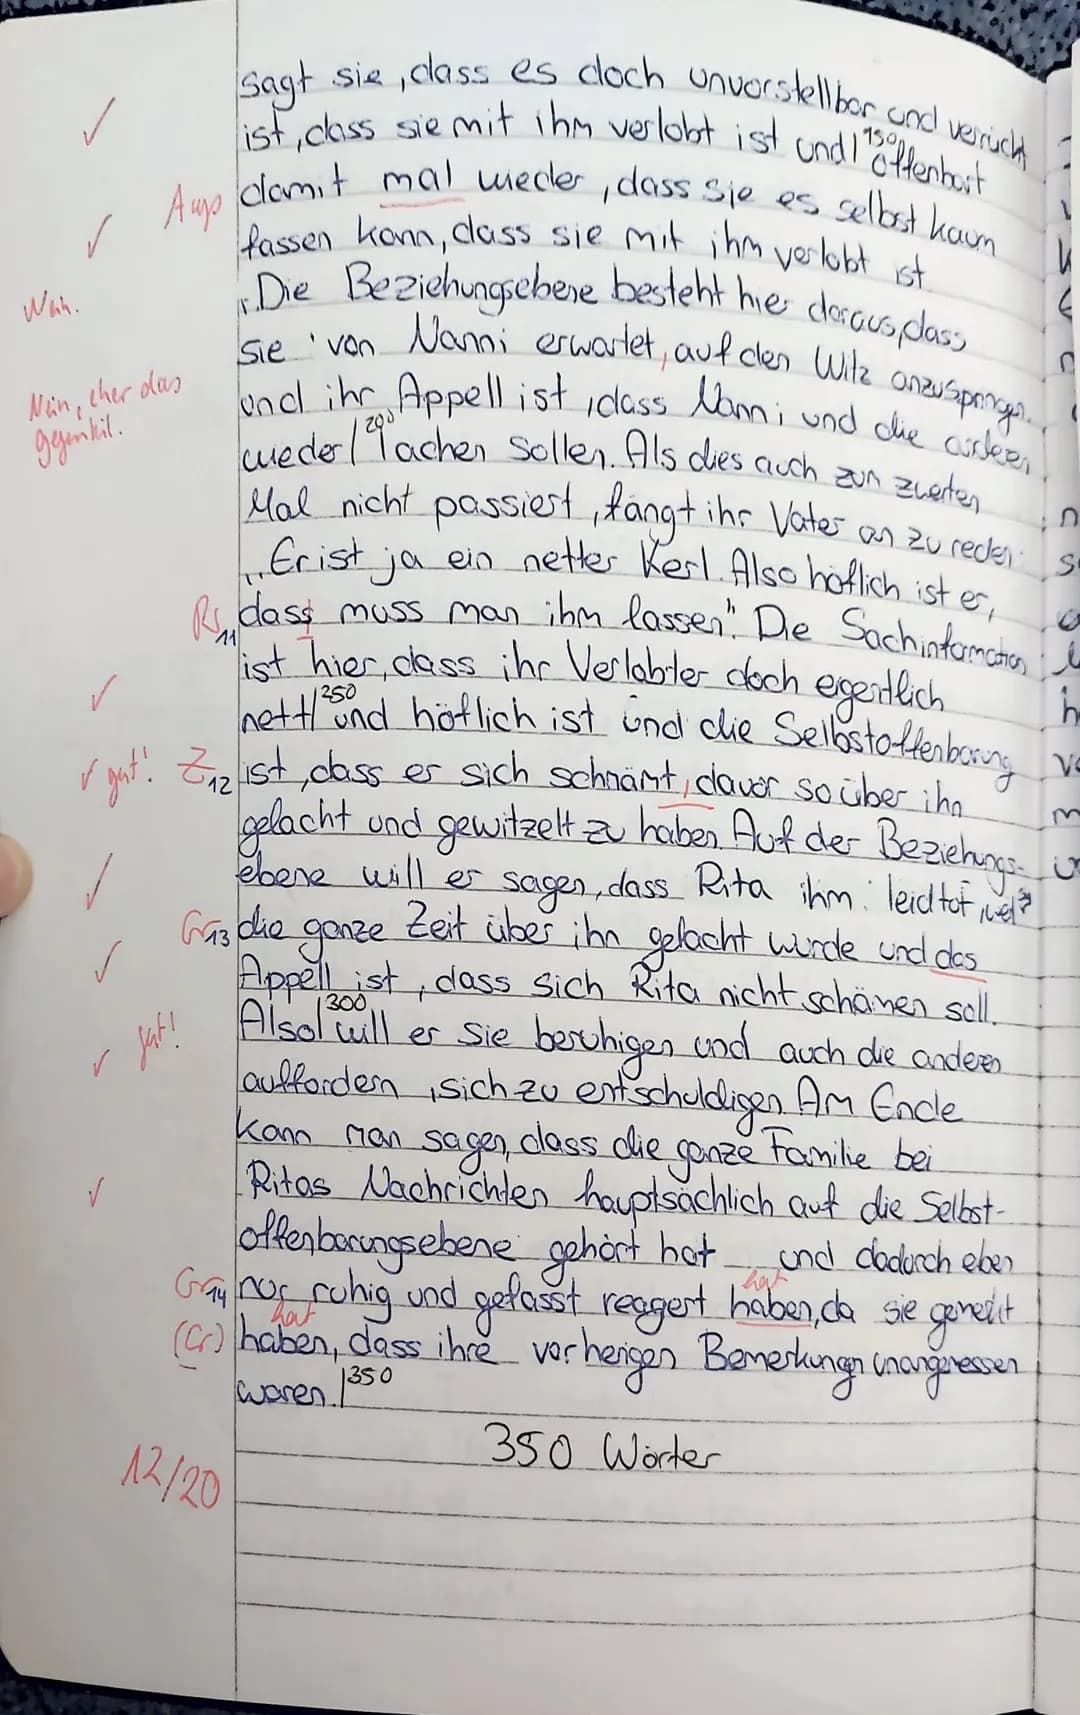 sagt sie, dass es doch unvorstellbar und verrückt
✓
ist, dass sie mit ihm verlobt ist und |150 offenbart
Ausdr damit mal wieder, dass sie es selbst kaum
✓
fassen kann, dass sie mit ihm verlobt ist
Wdh.
. Die Beziehungsebene besteht hier daraus, dass
sie von Nanni erwartet, auf den Witz anzuspringen
Nein, eher das
gegenteil.
und ihr Appell ist, dass Nanni und die anderen
wieder |200 lachen sollen. Als dies auch zum zweiten
Mal nicht passiert, fängt ihr Vater an zu reden:
„Er ist ja ein netter Kerl. Also höflich ist er,
Rs11 dass muss man ihm lassen". Die Sachinformation
ist hier, dass ihr Verlobter doch eigentlich
✓
nett |250 und höflich ist und die Selbstoffenbarung
✓ gut! Z12 ist, dass er sich schnämt, davor so über ihn
gelacht und gewitzelt zu haben. Auf der Beziehungs-
✓
ebene will er sagen, dass Rita ihm leid tot, weil
Gr13 die ganze Zeit über ihn gelacht wurde und das
✓
Appell ist, dass sich Rita nicht schämen soll.
✓ gut!
Also |300 will er sie beruhigen und auch die anderen
auffordern, sich zu entschuldigen. Am Ende
kann man sagen, dass die ganze Familie bei
✓
Ritas Nachrichten hauptsächlich auf die Selbst-
offenbarungsebene gehört hat und dadurch eben
hat
Gr14 nur ruhig und gefasst reagert haben, da sie gemerkt
hat
(Gr) haben, dass ihre vorherigen Bemerkungn unangemessen
waren. |350
350 Wörter
12/20